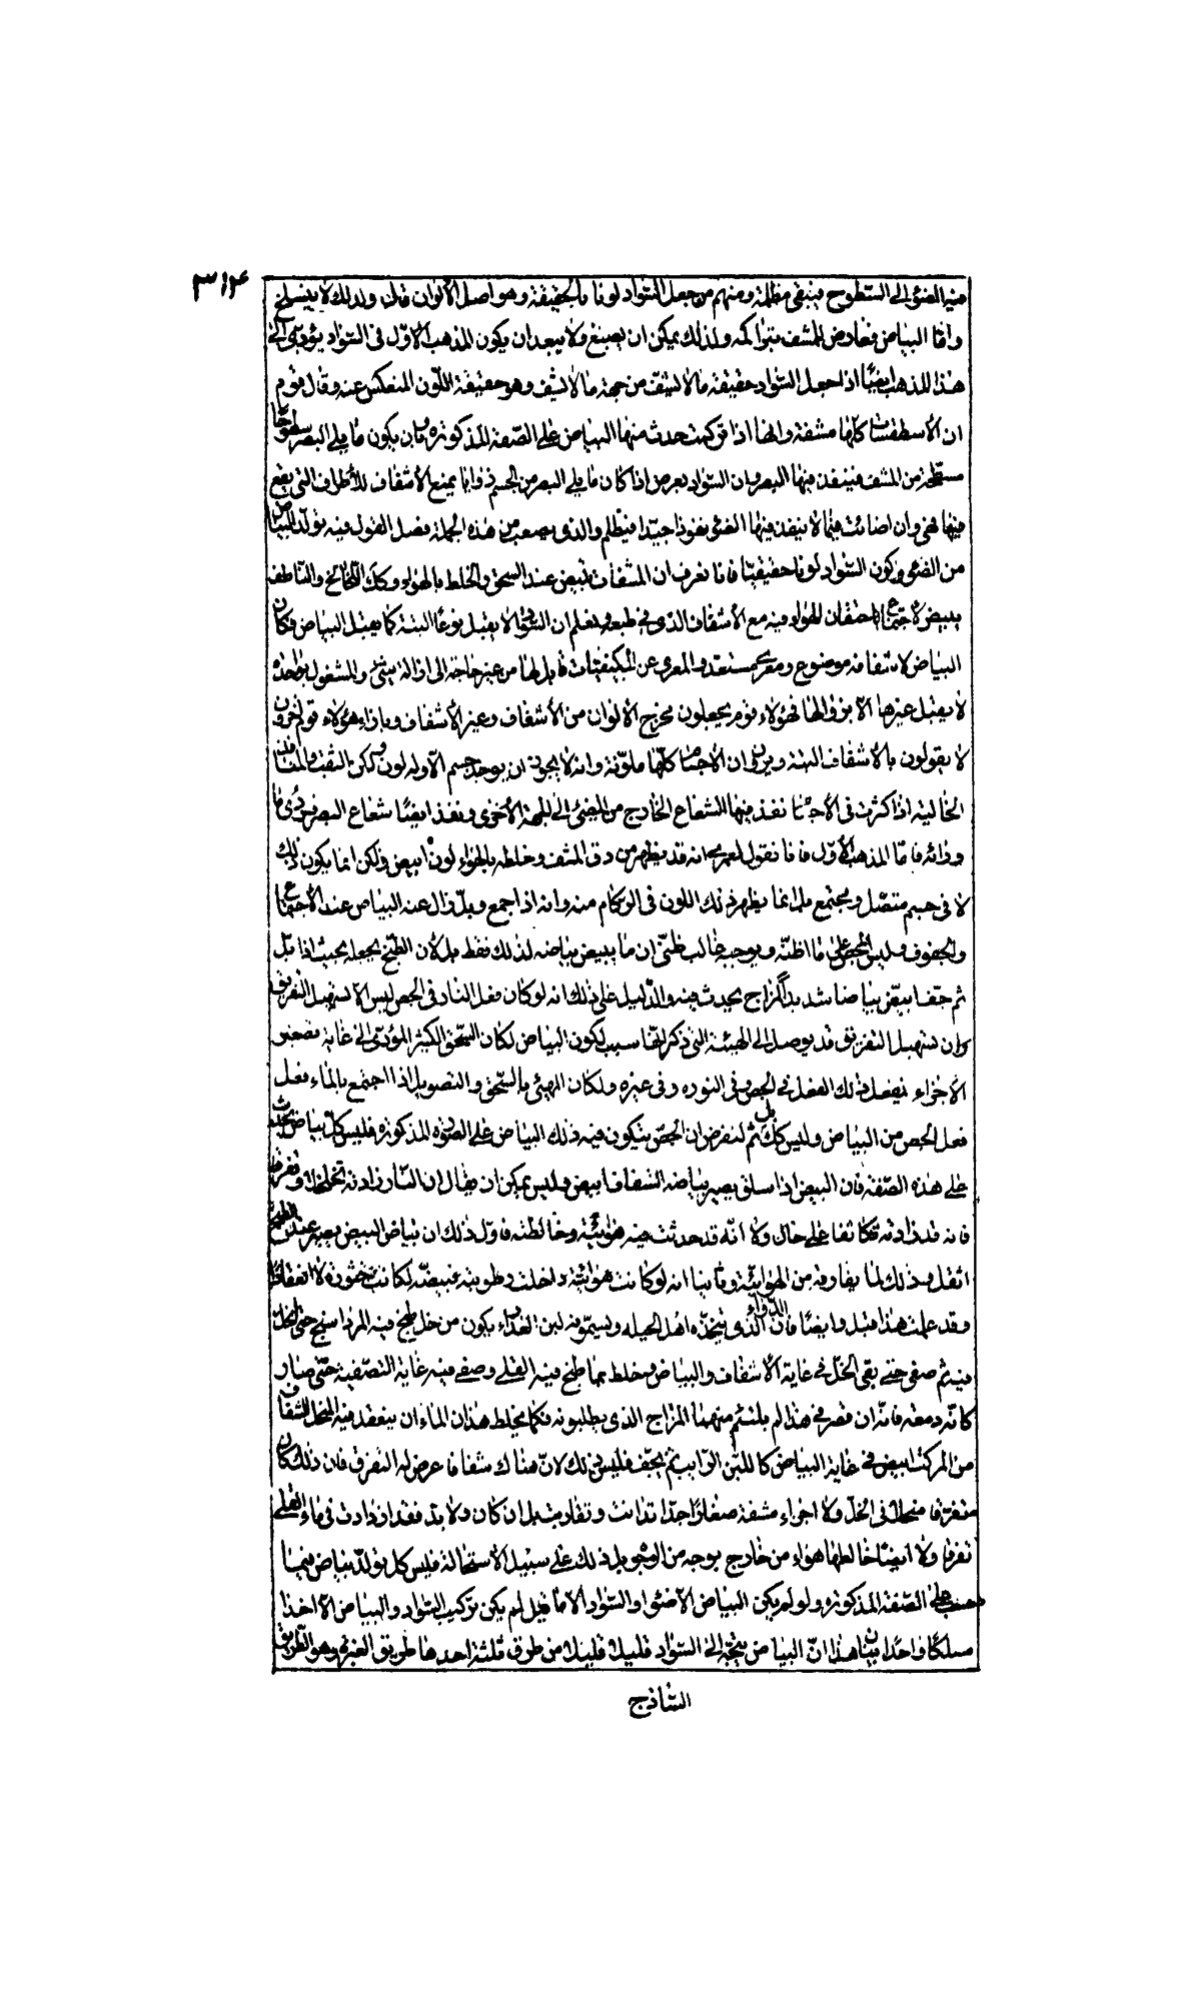 ٣١٤
فيه الضوء الى السطوح فيبقى مظلمة ومنهم من جعل السّواد لونا بالحقيقة وهو اصل الألوان قال ولذلك لا ينسلخ
وامّا البياض فعارض للمشف بتراكمه ولذلك يمكن ان يصبغ ولا يبعد ان يكون المذهب الاوّل فى السّواد يؤدى الى
هذا المذهب ايضًا اذا جعل السّواد حقيقة ما لا يشفّ من جهة ما لا يشف وهو حقيقة اللّون المنعكس عنه وقال قوم
ان الأسطقسّات كلّها مشفة وانها اذا تركبت حدث منها البياض على الصّفة المذكورة وبان يكون ما يلى البصر سطوحًا
مسطّحة من المشف فينفذ فيها البصر وان السّواد يعرض اذا كان ما يلى البصر من الجسم زوايا يمنع الأشفاف للأطراف التى يقع
فيها فهى وان اضائت فيما لا ينفذ فيها الضوء نفوذا جيّدا فيظلم والذى يصعب من هذه الجملة فصل القول فيه تولّد البياض
من الضوء وكون السّواد لونا حقيقيّا فانا نعرف ان المشفات تبيض عند السحق والخلط بالهواء وكك اللخالخ والناطف
يبيض لاجتماع احتقان الهواء فيه مع الأشفاف الذى فى طبعه ونعلم ان السّواد لا يقبل لونًا البتة كما يقبل البياض فكان
البياض لاشفافه موضوع ومعرّى مستعد والمعرى عن الكيفيّات قابل لها من غير حاجة الى ازالة شىء والمشغول بواحدة
لا يقبل غيرها الّا بزوالها فهؤلاء قوم يجعلون مخرج الألوان من الأشفاف وغير الأشفاف وبازاء هؤلاء قوم آخرون
لا يقولون بالأشفاف البتة ويرون ان الاجسام كلّها ملوّنة وانه لا يجوز ان يوجد جسم الّا وله لون ولكن الثقب والمنافذ
الخالية اذا كثرت فى الأجسام نفذ فيها الشعاع الخارج من المضئ الى الجهة الأخرى ونفذ ايضًا شعاع البصر فرئى ما
ورائه فامّا المذهب الأوّل فانا نقول لعمرى انه قد يظهر من دق المشف وخلطه بالهواء لون ابيض ولكن انما يكون ذلك
لا فى جسم متصّل ومجتمع بل انما يظهر ذلك اللون فى الركام منه وانه اذا جمع وبلّ زال عنه البياض عند الأجتماع
والجفوف وليس الجص على ما اظنّه ويوجبه غالب ظنّى ان ما يبيض بياضه لذلك فقط بل لان الطبخ يجعله بحيث اذا بلّ
ثم جفّ ابيضّ بياضا شديدا لمزاج يحدث فيه والدّليل على ذلك انه لو كان فعل النار فى الجص ليس الا تسهيل التفريق
وان تسهيل التفريق قد يوصل الى الهيئة التى ذكر انّها سبب لكون البياض لكان السّحق الكثير المؤدّى الى غاية تصغير
الأجزاء يفعل ذلك الفعل فى الجص وفى النورة وفى غيره ولكان المهيئ بالسّحق والتصويل اذا اجتمع بالماء فعل
فعل الجص من البياض وليس كك ثم لنفرض ان الجصّ يتكون فيه ذلك البياض على الصّورة المذكورة فليس كلّ بياض يحدث
على هذه الصّفة فان البيض اذا سلق يصير بياضه الشفاف ابيض وليس يمكن ان يقال ان النّار زادته تخلخلا وتفرقا
فانه قد زادته تكاثفا على حال ولا انّه قد حدثت فيه هوائيّة وخالطته فاوّل ذلك ان بياض البيض يصير عند الطبخ
اثقل وذلك لما يفارقه من الهوائيّة وثانيا انه لو كانت هوائيّة داخلت رطوبته فبيضته لكانت خثورة لا انعقادا
وقد علمت هذا قبل وايضًا فان الدّواء الذى يتخذه اهل الحيلة ويسمّونه لبن العذراء يكون من خل طبخ فيه المرداسنج حتى انحل
فيه ثم صفى حتى بقى الخلّ فى غاية الأشفاف والبياض وخلط بما طبخ فيه القلى وصفى فيه غاية التصفية حتّى صار
كانّه دمعة فانه ان قصر فى هذا لم يلتئم منهما المزاج الذى يطلبونه فكما يخلط هذان الماءان ينعقد فيه المنحل الشفاف
من المرتك ابيض فى غاية البياض كاللبن الرّايب ثم يجفّ فليس ذلك لانّ هناك شفافا عرض له التفرق فان ذلك كان
متفرّقا منحلّا فى الخلّ ولا اجزاء مشفة صغارًا جدّا تدانت وتقاربت بل ان كان ولا بدّ فقد ازدادت فى ماء القلى
تفرقا ولا ايضًا خالطها هواء من خارج بوجه من الوجوه بل ذلك على سبيل الأستحالة فليس كل تولّد بياض فيما
احسب على الصّفة المذكورة ولو لم يكن البياض الّا ضوءا والسّواد الّا ما قيل لم يكن تركيب السّواد والبياض الّا اخذا
مسلكًا واحدًا بيان هذا انّ البياض يتجّه الى السّواد قليلا قليلا من طرق ثلثة احدها طريق الغبرة وهو الطّريق
السّاذج